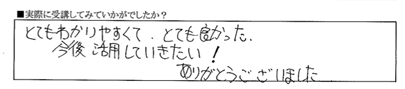 ■実際に受講してみていかがでしたか？
とてもわかりやすくて、とても良かった.
今後活用していきたい！
ありがとうございました